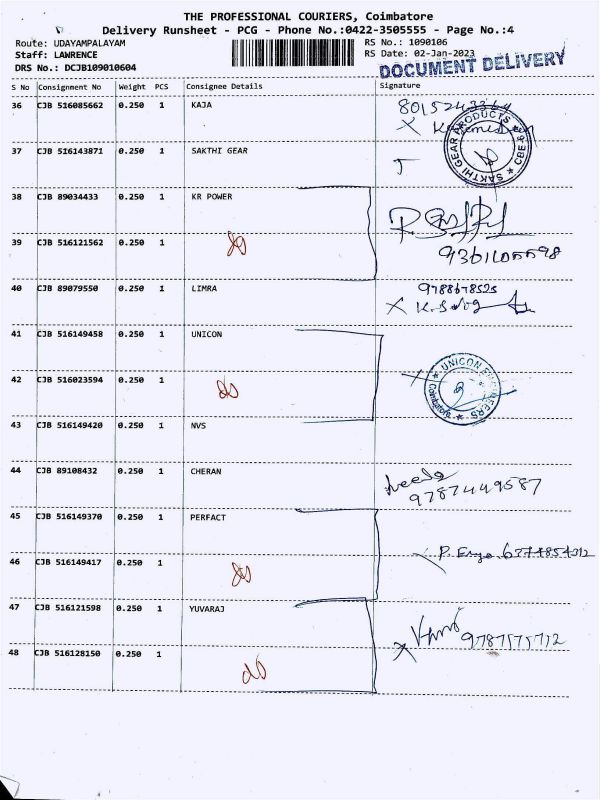 THE PROFESSIONAL COURIERS, Coimbatore
Delivery Runsheet - PCG - Phone No.:0422-3505555 - Page No.:4
Route: UDAYAMPALAYAM
RS No.: 1090106
Staff: LAWRENCE
RS Date: 02-Jan-2023
DRS No.: DCJB109010604
DOCUMENT DELIVERY
S No Consignment No Weight PCS Consignee Details Signature
36 CJB 516085662 0.250 1 KAJA
37 CJB 516143871 0.250 1 SAKTHI GEAR
SAKTHI GEAR PRODUCTS ★ CBE-6 ★
38 CJB 89034433 0.250 1 KR POWER
39 CJB 516121562 0.250 1 do
40 CJB 89079550 0.250 1 LIMRA 9788678525
41 CJB 516149458 0.250 1 UNICON
★ UNICON ENGINEERS ★ Coimbatore
42 CJB 516023594 0.250 1 do
43 CJB 516149420 0.250 1 NVS
44 CJB 89108432 0.250 1 CHERAN
9787449587
45 CJB 516149370 0.250 1 PERFACT
46 CJB 516149417 0.250 1 do
47 CJB 516121598 0.250 1 YUVARAJ
9787575712
48 CJB 516128150 0.250 1 do